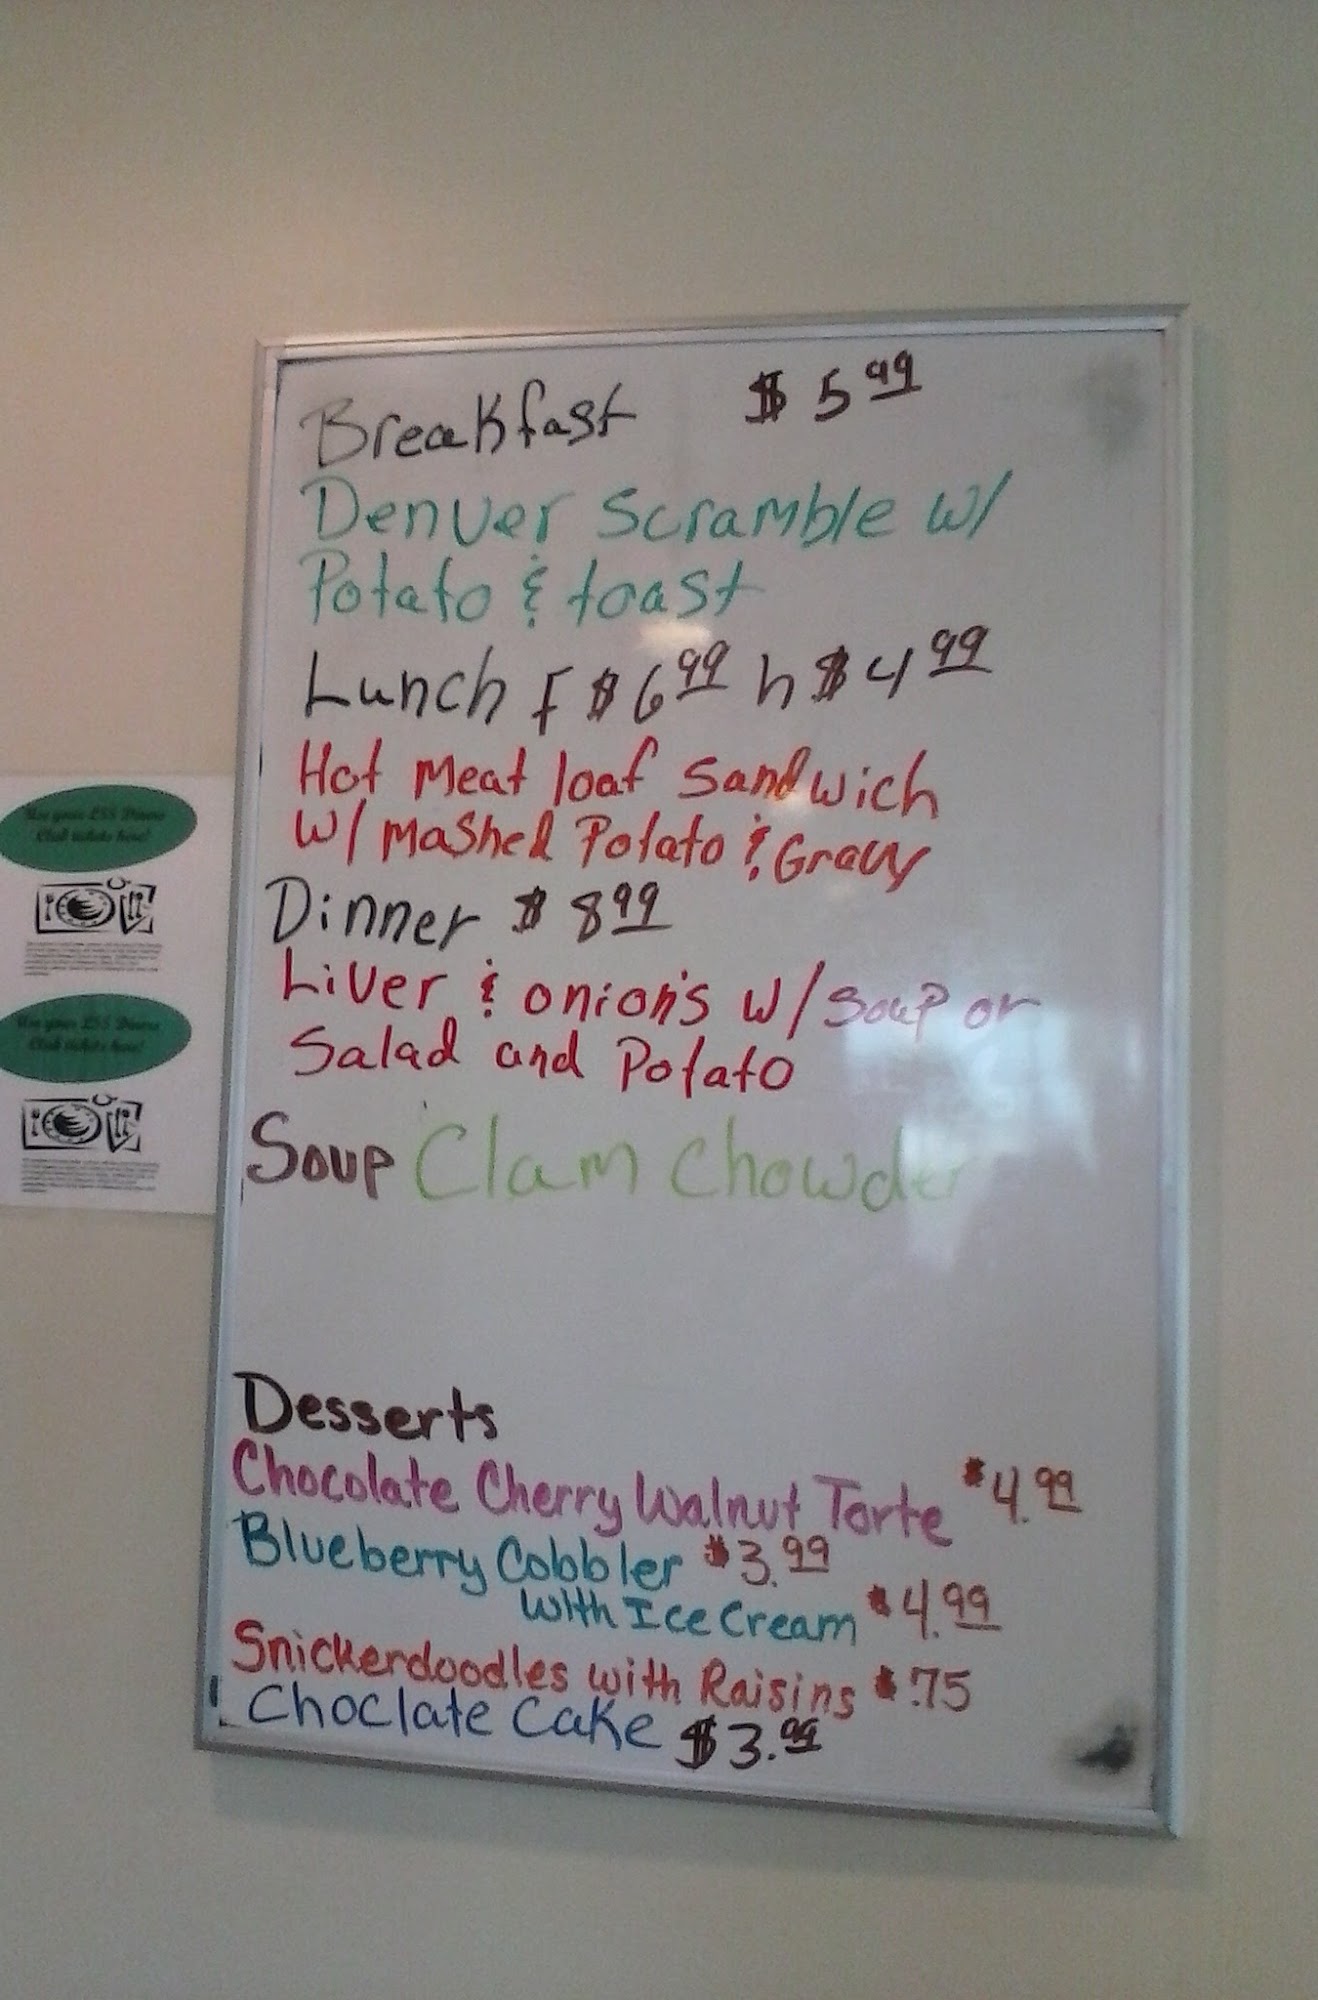 Breakfast $5.99
Denver Scramble w/
Potato & toast
Lunch F $6.99 h $4.99
Hot Meat loaf Sandwich
w/ Mashed Potato & Gravy
Dinner $8.99
Liver & onion's w/ Soup or
Salad and Potato
Soup Clam Chowder
Desserts
Chocolate Cherry Walnut Torte $4.99
Blueberry Cobbler $3.99
with Ice Cream $4.99
Snickerdoodles with Raisins $.75
Choclate Cake $3.99
Use your LSS Diners
Club tickets here!
Use your LSS Diners
Club tickets here!